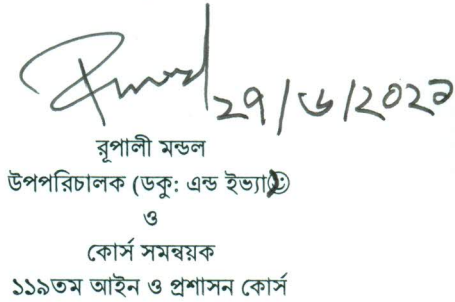 ২৭/৬/২০২১
রূপালী মন্ডল
উপপরিচালক (ডকু: এন্ড ইভ্যা:)
ও
কোর্স সমন্বয়ক
১১৯তম আইন ও প্রশাসন কোর্স